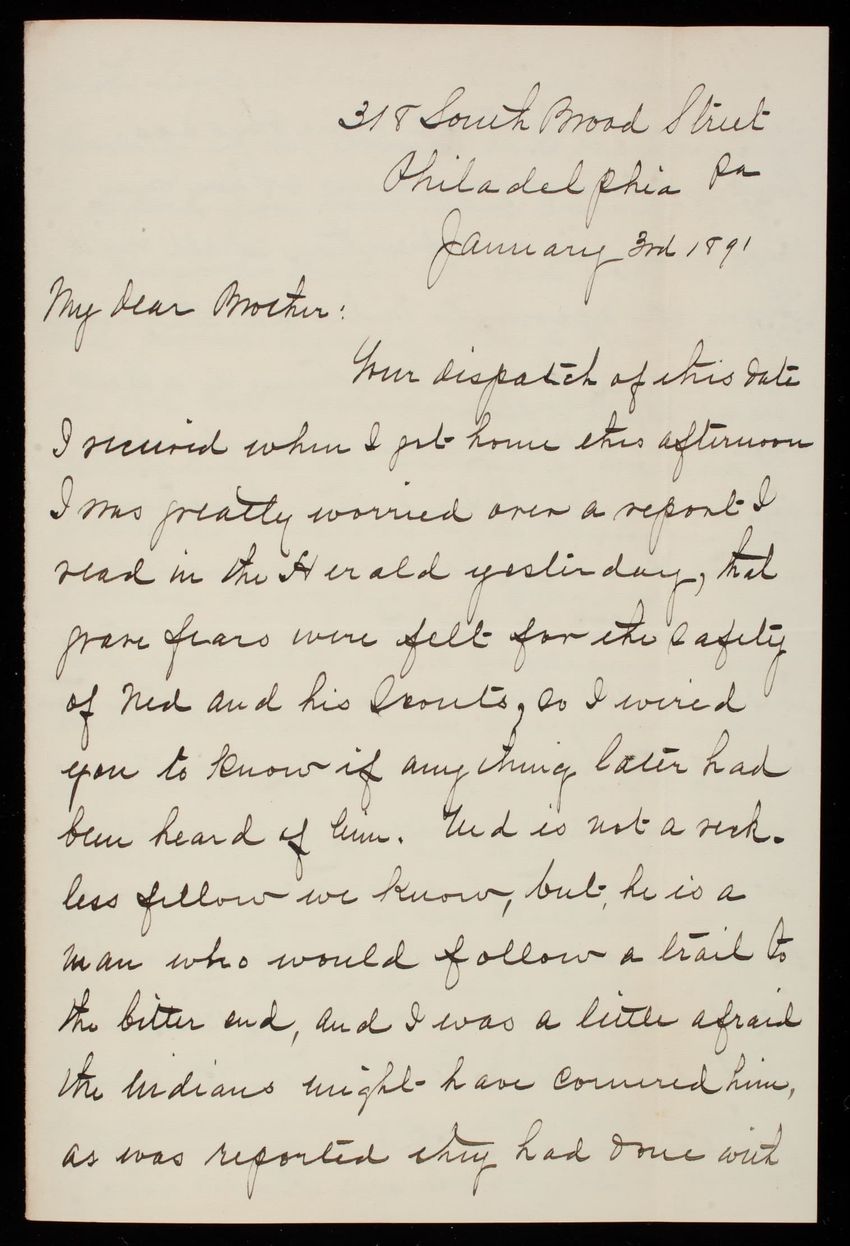 318 South Broad Street
Philadelphia Pa
January 3rd 1891
My dear Brother:
Your dispatch of this date
I received when I got home this afternoon
I was greatly worried over a report I
read in the Herald yesterday, that
grave fears were felt for the safety
of Ned and his Scouts, so I wired
you to know if anything later had
been heard of him. Ned is not a reck-
less fellow we know, but, he is a
man who would follow a trail to
the bitter end, and I was a little afraid
the Indians might have cornered him,
as was reported they had done with